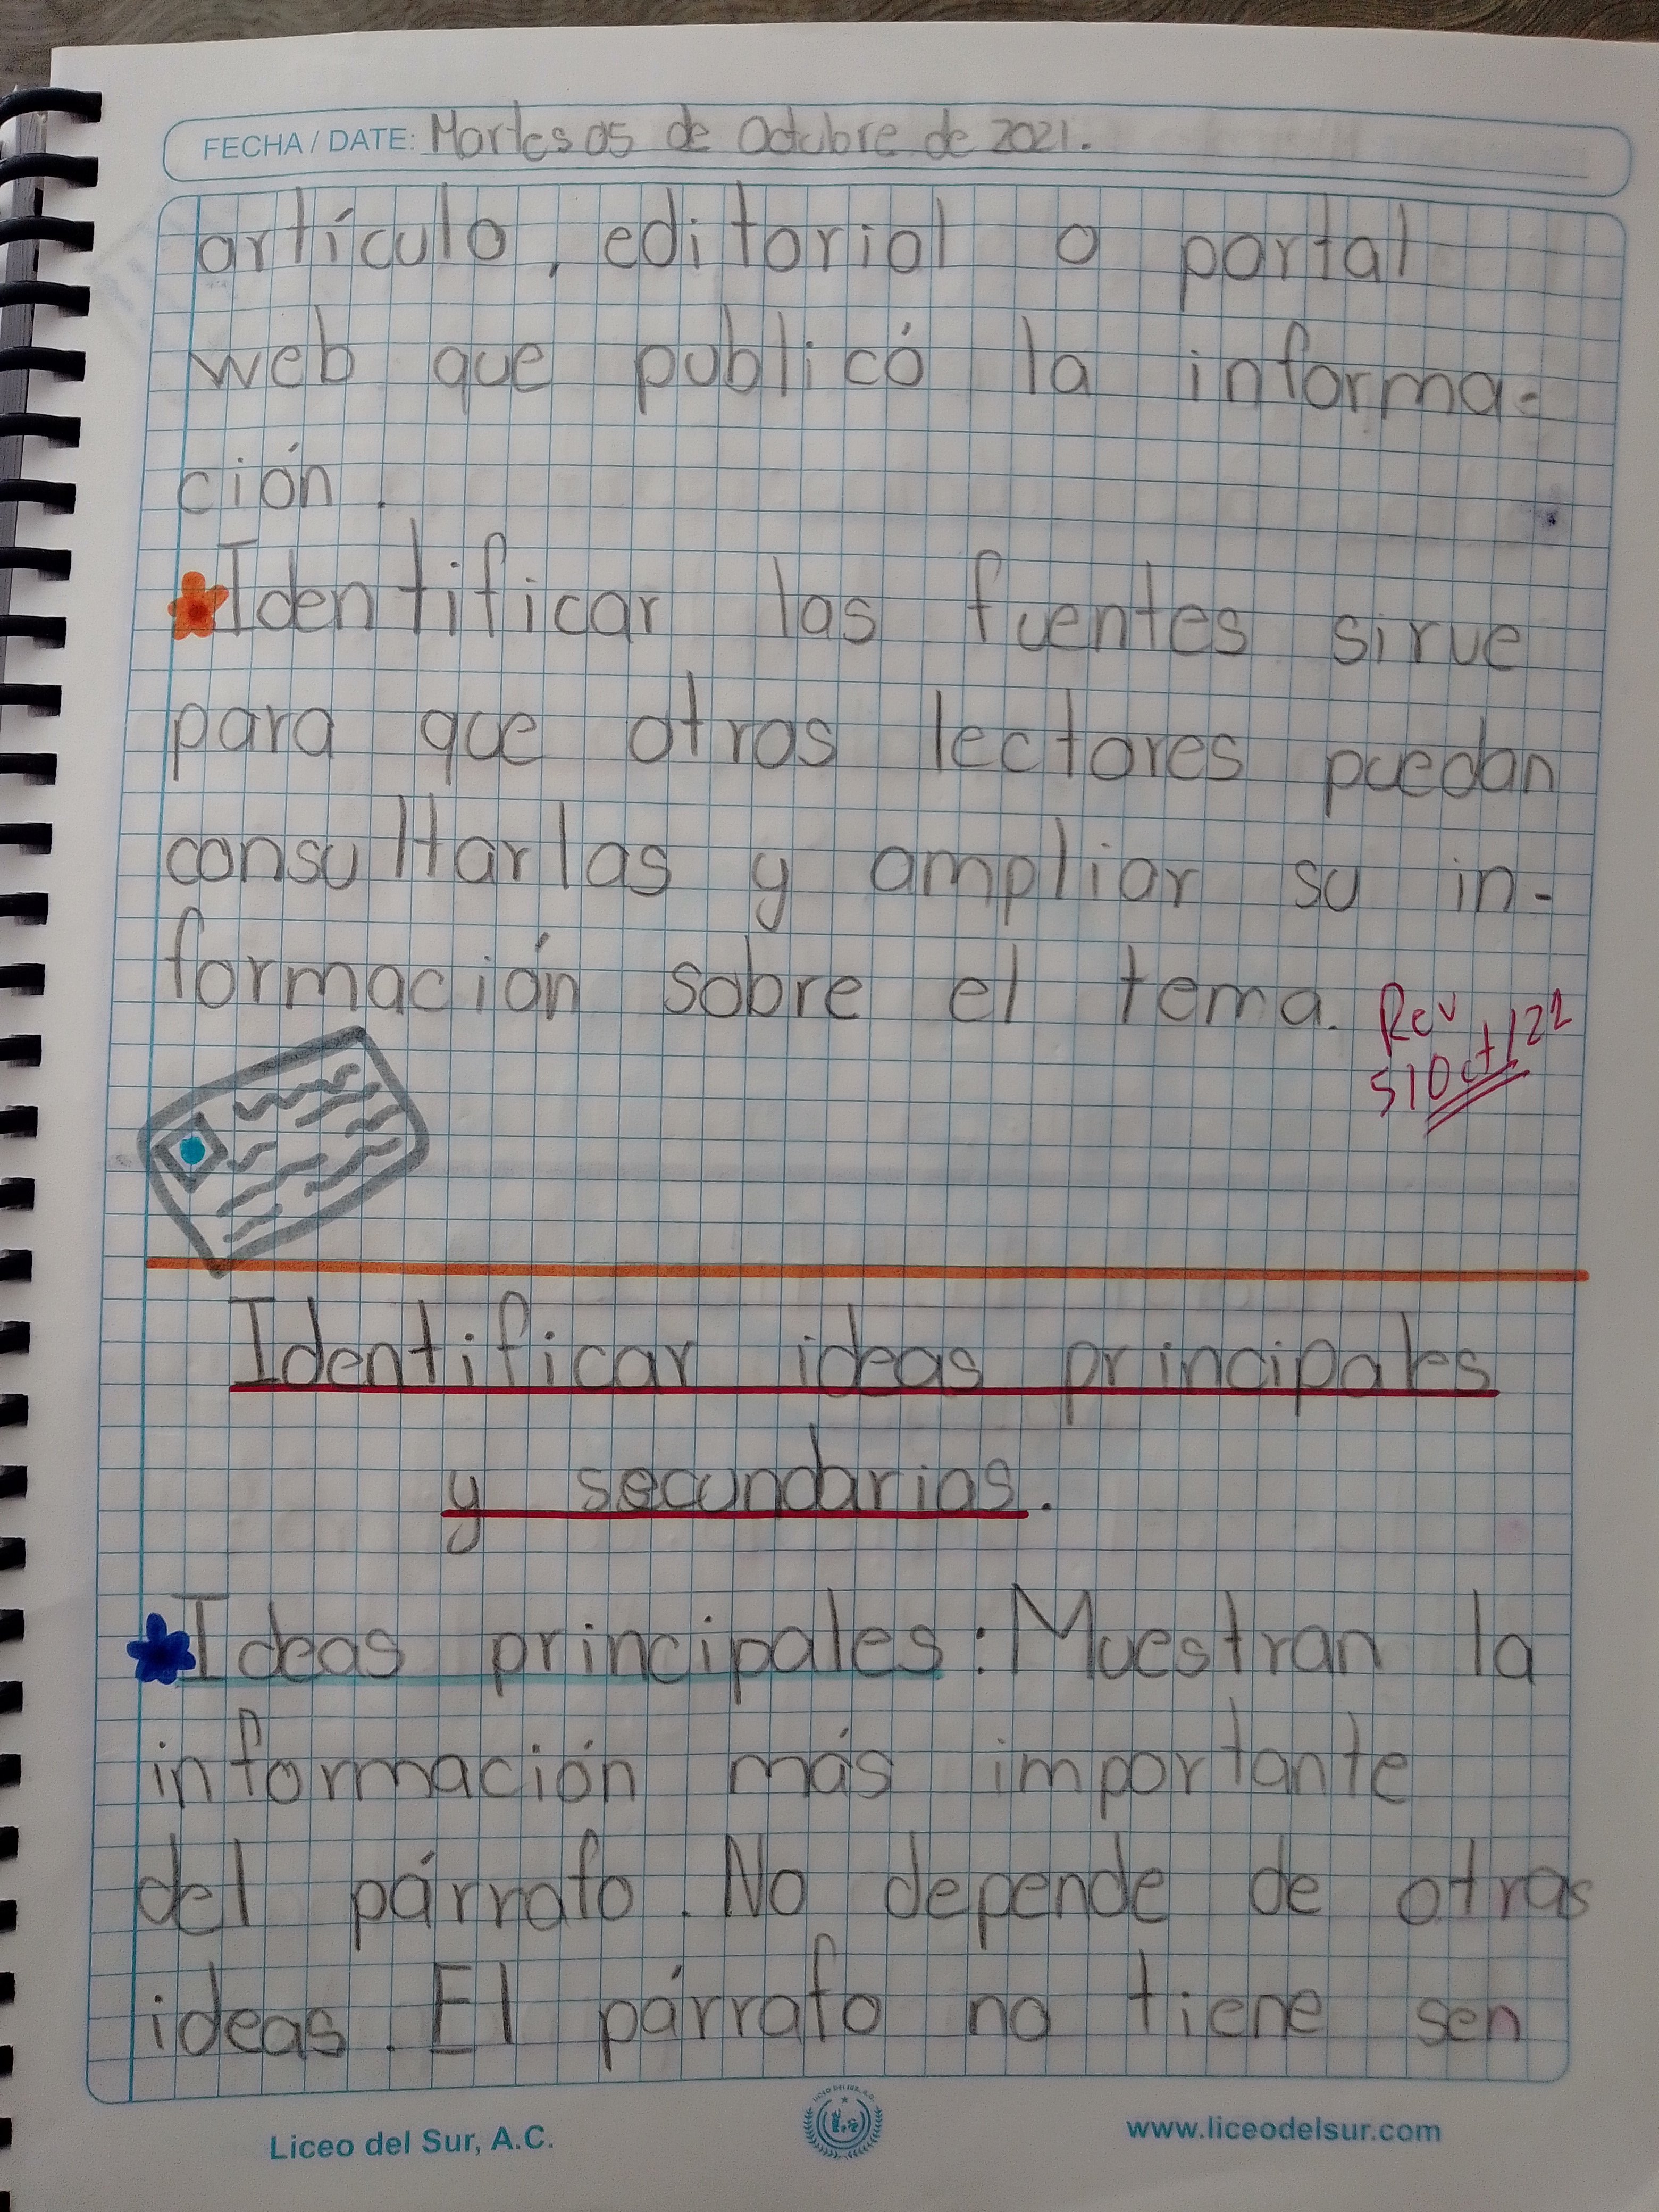 FECHA / DATE: Martes 05 de Octubre de 2021.
artículo, editorial o portal
web que publicó la informa-
ción.
Identificar las fuentes sirve
para que otros lectores puedan
consultarlas y ampliar su in-
formación sobre el tema.
Rev
5/Oct/22
Identificar ideas principales
y secundarias.
Ideas principales: Muestran la
información más importante
del párrafo. No depende de otras
ideas. El párrafo no tiene sen
Liceo del Sur, A.C.
www.liceodelsur.com